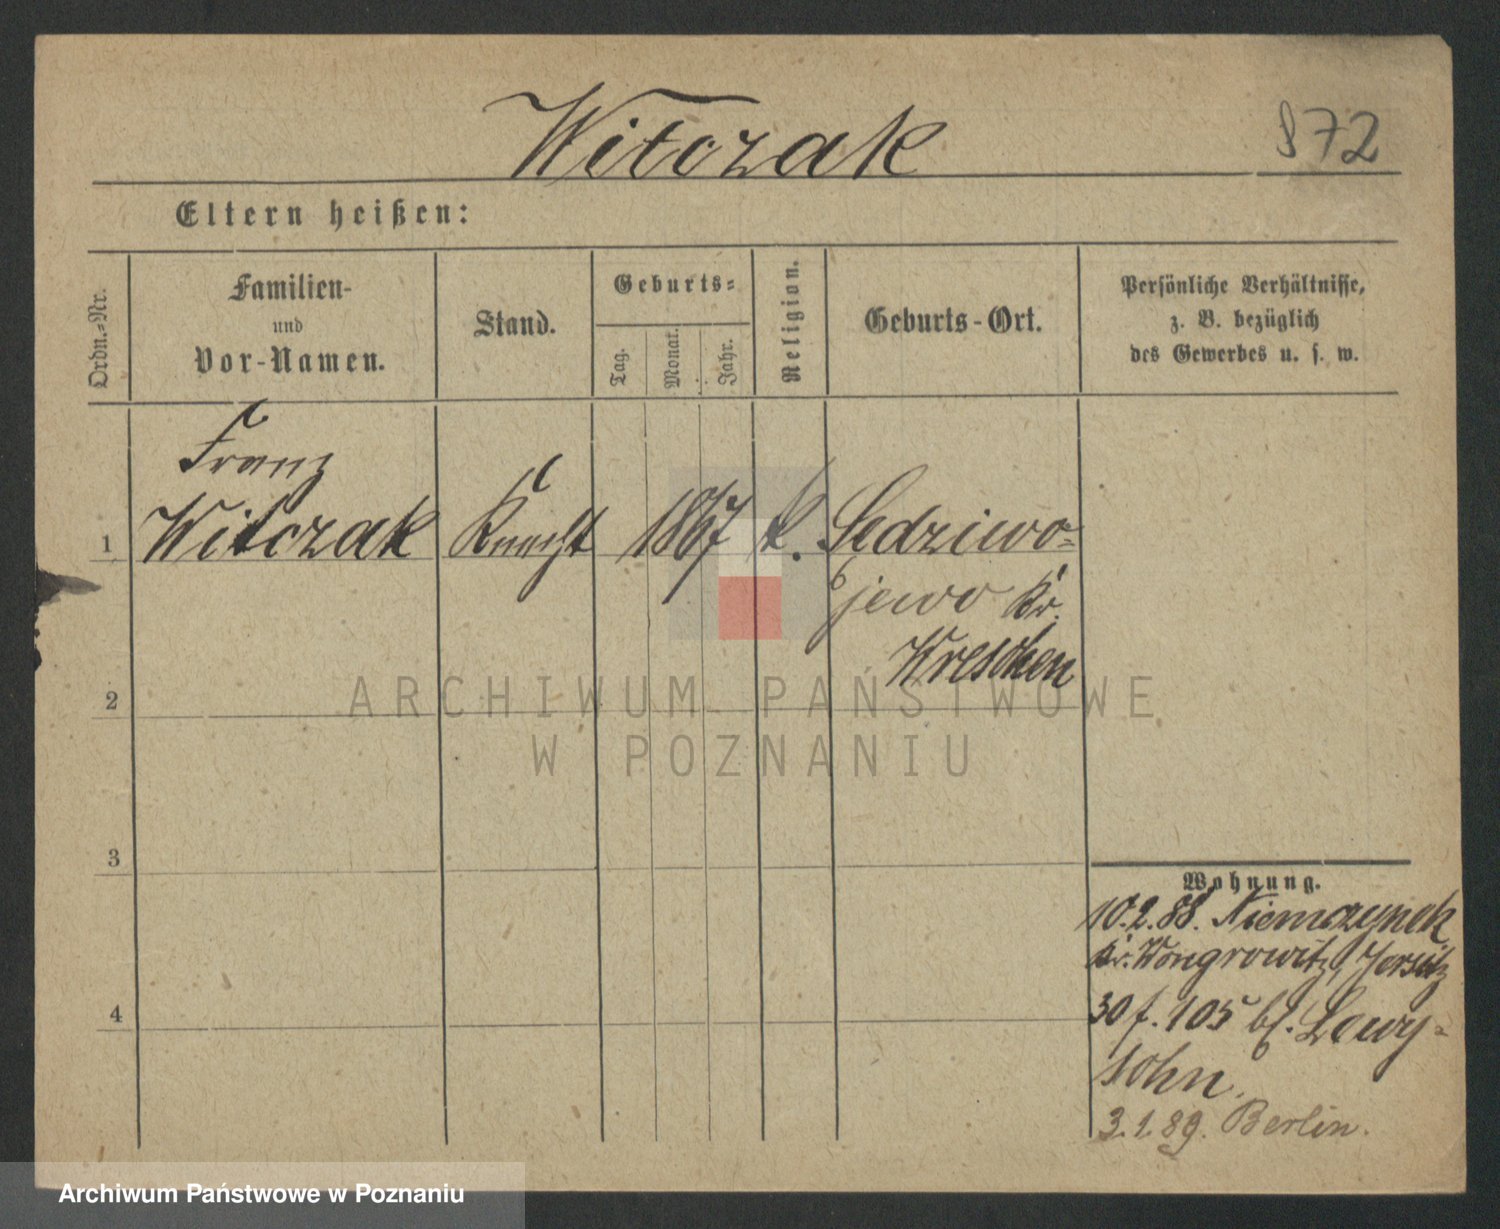 Witczak
872
Eltern heißen:
Ordn.-Nr.
Familien-
und
Vor-Namen.
Stand.
Geburts-
Tag.
Monat.
Jahr.
Religion.
Geburts-Ort.
Persönliche Verhältnisse,
z. B. bezüglich
des Gewerbes u. s. w.
Franz
1 Witczak Knecht 1867 k. Sedziwo-
jewo Kr.
Wreschen
2
3
4
Wohnung.
10.2.88. Niemczynek
Kr. Wongrowitz, Jersitz
30 f. 105 bf. Lewy-
sohn.
3.1.89. Berlin.
ARCHIWUM PAŃSTWOWE
W POZNANIU
Archiwum Państwowe w Poznaniu